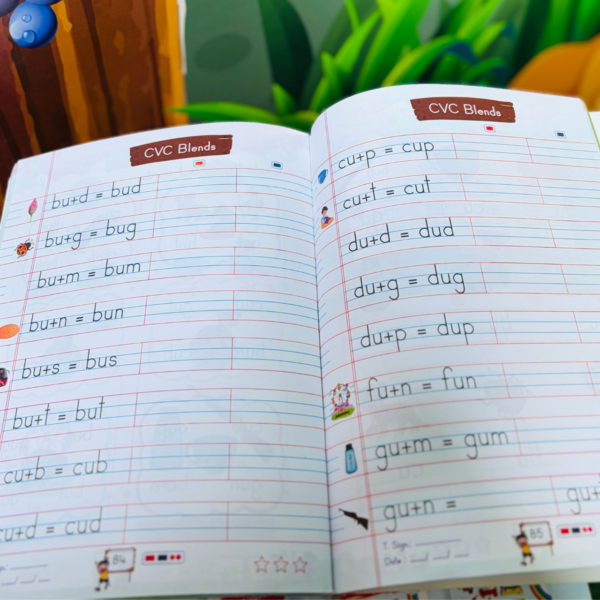 CVC Blends
bu+d = bud
bu+g = bug
bu+m = bum
bu+n = bun
bu+s = bus
bu+t = but
cu+b = cub
cu+d = cud
84
CVC Blends
cu+p = cup
cu+t = cut
du+d = dud
du+g = dug
du+p = dup
fu+n = fun
gu+m = gum
gu+n = gu+
T. Sign.
Date :
85